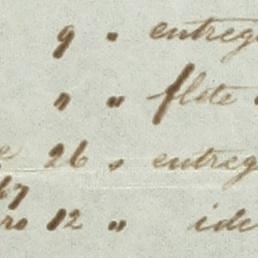 9 " entreg
" " flete
e 26 " entreg
67
ro 12 " ide